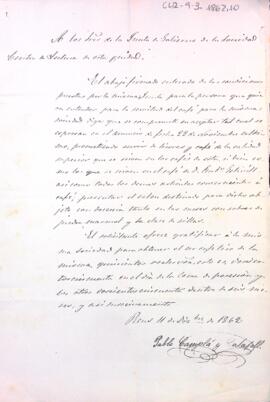 CLR-9-3-1862,10
A los Sres. de la Junta de Gobierno de la Sociedad
Centro de Lectura de esta ciudad.
El abajo firmado enterado de las condiciones
puestas por la misma Junta para la persona que quie-
ra entender para la servitud del café para la misma
sociedad dice que se compromete en aceptar tal cual se
espresan en el anuncio de fecha 22 de noviembre último,
prometiendo servir de licores y café de la calidad
superior que se sirven en los cafés de esta, si bien co-
mo los que se sirven en el café de D.
así como todos los demás artículos concernientes á
café, presentar el salón destinado para dicho ob-
jeto con decencia tanto en las mesas con sobre de
piedra marmol y la clase de sillas.
El solicitante ofrece gratificar á la mis-
ma sociedad para obtener el usufructo de la
misma, quinientos reales vn, esto es, doscientos
cincuenta en el día de la toma de posesión y
los otros doscientos cincuenta dentro de seis me-
ses, y así sucesivamente.
Reus 11 de Dbre. de 1862
Pablo y